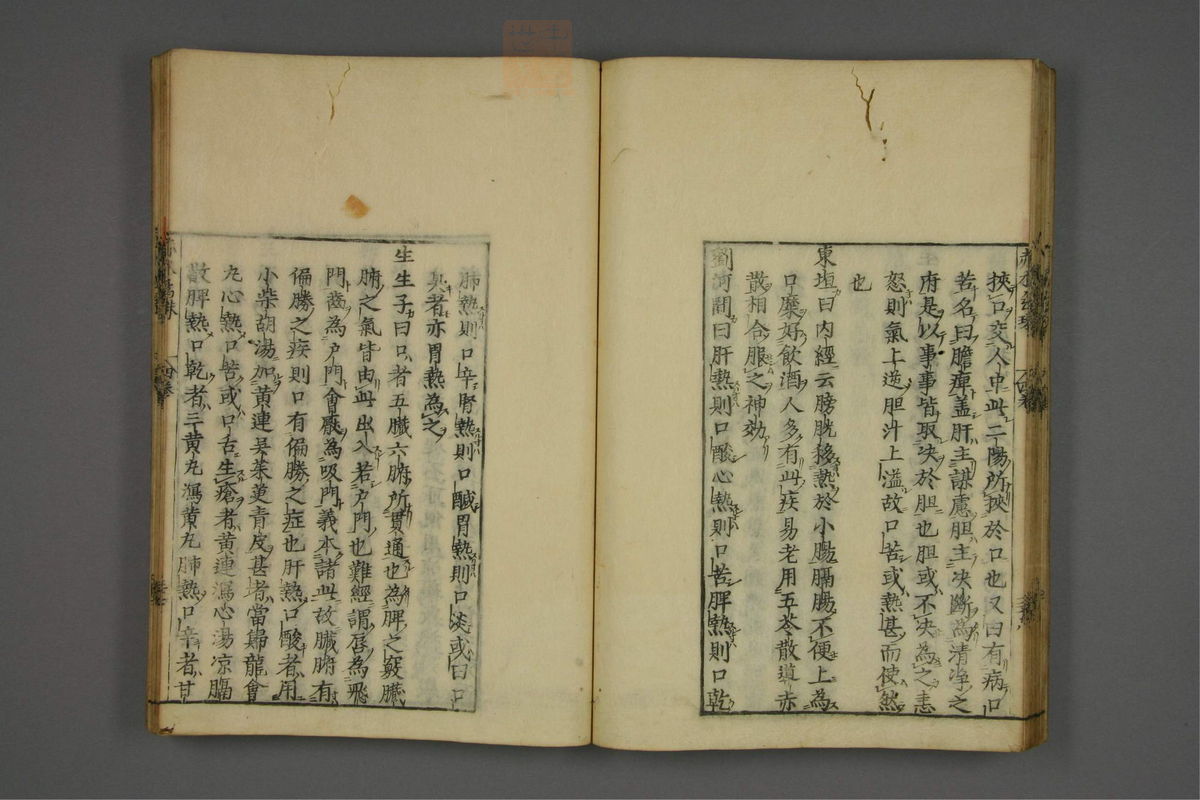 挾口交人中此二陽所挾於口也又曰有病口
苦名曰膽癉蓋肝主謀慮胆主决斷為清浄之
府是以事事皆取决於胆也胆或不决為之恚
怒則氣上逆胆汁上溢故口苦或熱甚而使然
也
東垣曰内經云膀胱移熱於小腸膈腸不便上為
口糜好飲酒人多有此疾易老用五苓散導赤
散相合服之神効
劉河間曰肝熱則口酸心熱則口苦脾熱則口乾
肺熱則口辛腎熱則口醎胃熱則口淡或曰口
臭者亦胃熱為之
生生子曰口者五臟六腑所貫通也為脾之竅臟
腑之氣皆由此出入若户門也難經謂唇為飛
門齒為户門會厭為吸門義本諸此故臟腑有
偏勝之疾則口有偏勝之症也肝熱口酸者用
小柴胡湯加黄連吴茱萸青皮甚者當歸龍會
丸心熱口苦或口舌生瘡者黄連瀉心湯凉膈
散脾熱口乾者三黄丸瀉黄丸肺熱口辛者甘